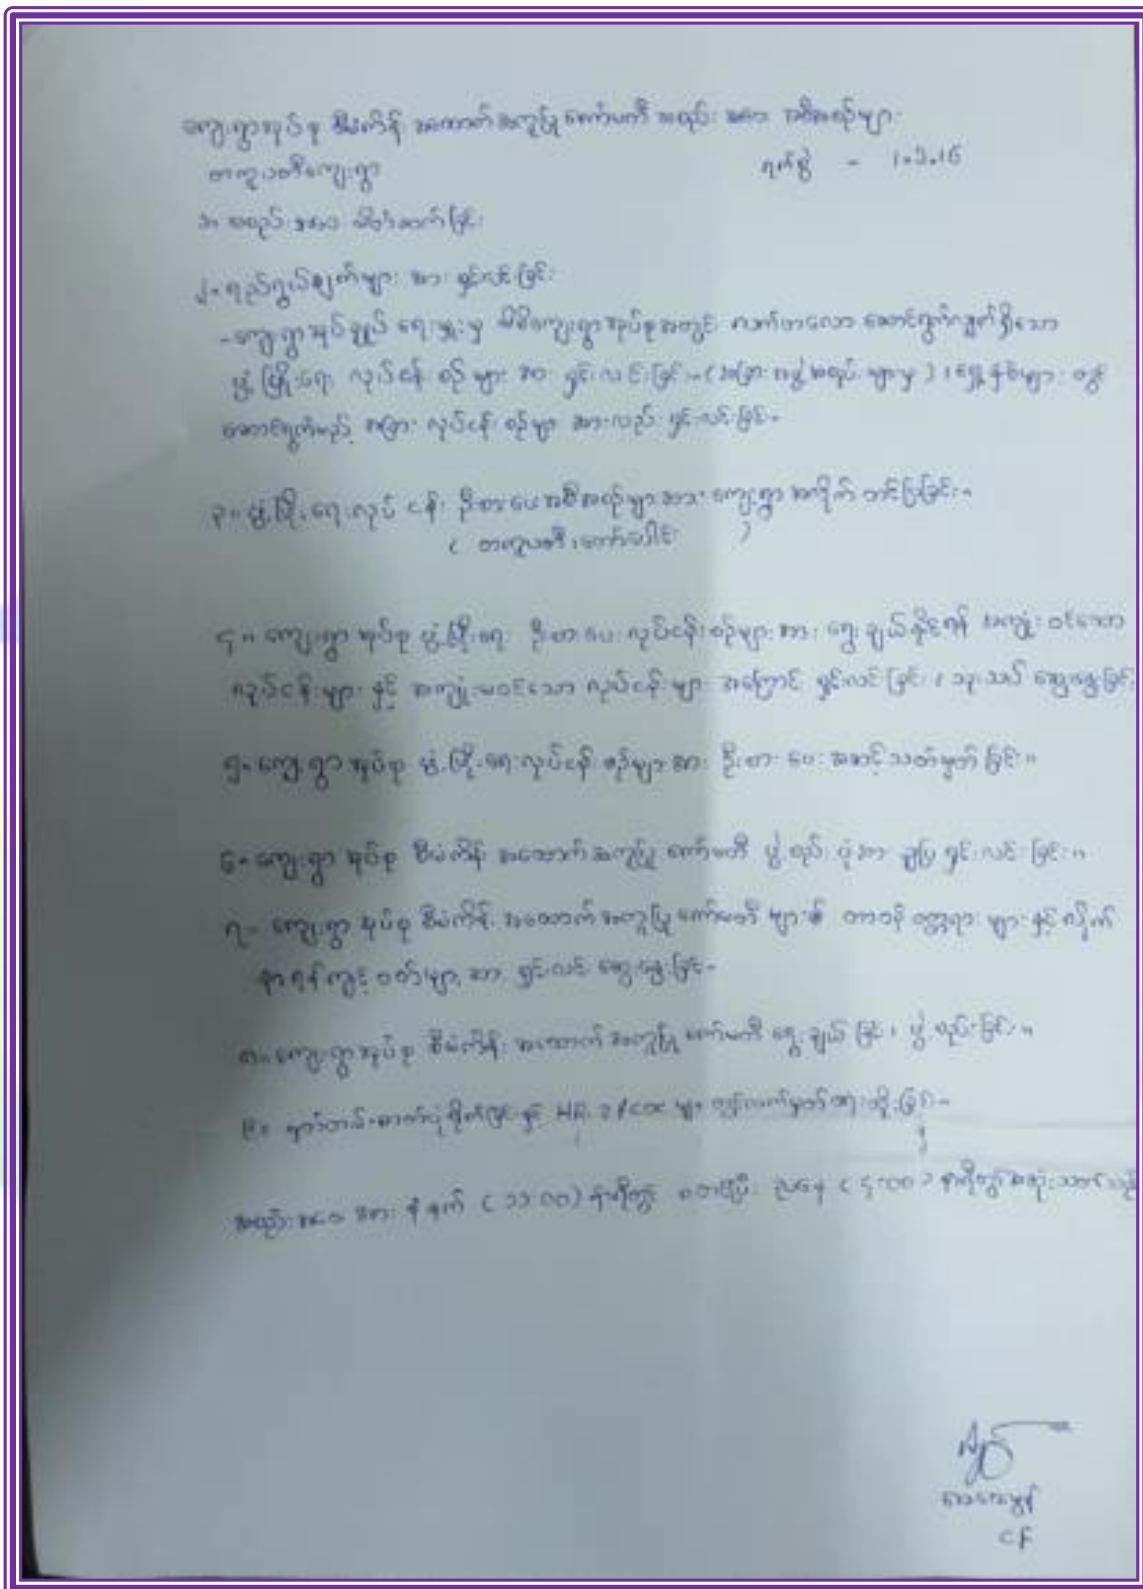 ကျေးရွာအုပ်စု စီမံကိန်း အထောက်အကူပြု ကော်မတီ အစည်းအဝေး အစီအစဉ်များ
တကူပတီကျေးရွာ ရက်စွဲ - 1.3.16
၁။ အစည်းအဝေး မိတ်ဆက်ခြင်း
၂။ ရည်ရွယ်ချက်များ အား ရှင်းလင်းခြင်း
- ကျေးရွာအုပ်ချုပ်ရေးမှူးမှ မိမိကျေးရွာအုပ်စုအတွင်း လတ်တလော ဆောင်ရွက်လျှက်ရှိသော
ဖွံ့ဖြိုးရေး လုပ်ငန်းစဉ်များ အား ရှင်းလင်းခြင်း။ (အခြားအဖွဲ့အစည်းများမှ) ၊ ရှေ့နှစ်များ တွင်
ဆောင်ရွက်မည့် အခြား လုပ်ငန်းစဉ်များ အားလည်း ရှင်းလင်းခြင်း။
၃။ ဖွံ့ဖြိုးရေးလုပ်ငန်း ဦးစားပေးအစီအစဉ်များအား ကျေးရွာအလိုက် တင်ပြခြင်း။
( တကူပတီ၊ )
၄။ ကျေးရွာအုပ်စု ဖွံ့ဖြိုးရေး ဦးစားပေး လုပ်ငန်းစဉ်များအား ရွေးချယ်နိုင်ရန် အကျုံးဝင်သော
လုပ်ငန်းများ နှင့် အကျုံးမဝင်သော လုပ်ငန်းများ အကြောင်း ရှင်းလင်းခြင်း ၊ သုံးသပ် ဆွေးနွေးခြင်း
၅။ ကျေးရွာအုပ်စု ဖွံ့ဖြိုးရေးလုပ်ငန်းစဉ်များအား ဦးစားပေးအဆင့်သတ်မှတ်ခြင်း။
၆။ ကျေးရွာအုပ်စု စီမံကိန်း အထောက်အကူပြု ကော်မတီ ဖွဲ့စည်းပုံအား ချပြ ရှင်းလင်းခြင်း။
၇။ ကျေးရွာအုပ်စု စီမံကိန်း အထောက်အကူပြု ကော်မတီများ၏ တာဝန် ဝတ္တရားများ နှင့် လိုက်
နာရန်ကျင့်ဝတ်များ အား ရှင်းလင်းဆွေးနွေးခြင်း။
၈။ ကျေးရွာအုပ်စု စီမံကိန်း အထောက်အကူပြု ကော်မတီ ရွေးချယ်ခြင်း၊ ဖွဲ့စည်းခြင်း။
၉။ မှတ်တမ်းဓာတ်ပုံရိုက်ခြင်းနှင့် များ တွင်လက်မှတ်ရေးထိုးခြင်း။
အစည်းအဝေးအား နံနက် (၁၁:၀၀) နာရီတွင် စတင်ပြီး ညနေ (၄:၀၀) နာရီတွင်အဆုံးသတ်သည်
CF